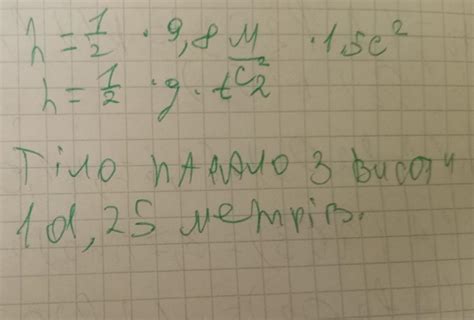 h = 1/2 · 9,8 м/с² · 1,5с²
h = 1/2 · g · t²
Тіло падало з висоти
1d,25 метрів.